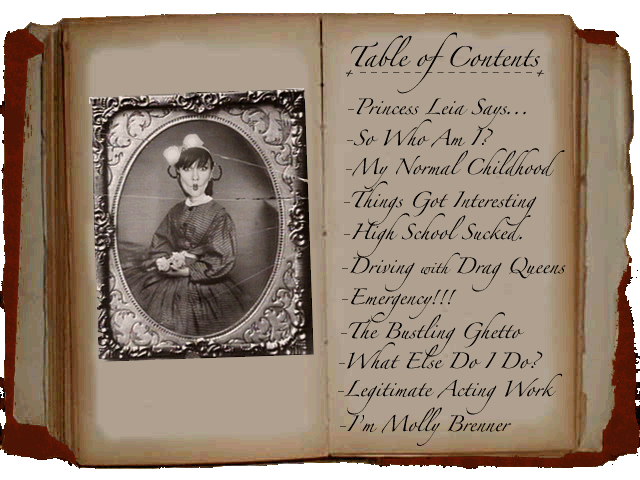 Table of Contents
-Princess Leia Says...
-So Who Am I?
-My Normal Childhood
-Things Got Interesting
-High School Sucked.
-Driving with Drag Queens
-Emergency!!!
-The Bustling Ghetto
-What Else Do I Do?
-Legitimate Acting Work
-I'm Molly Brenner